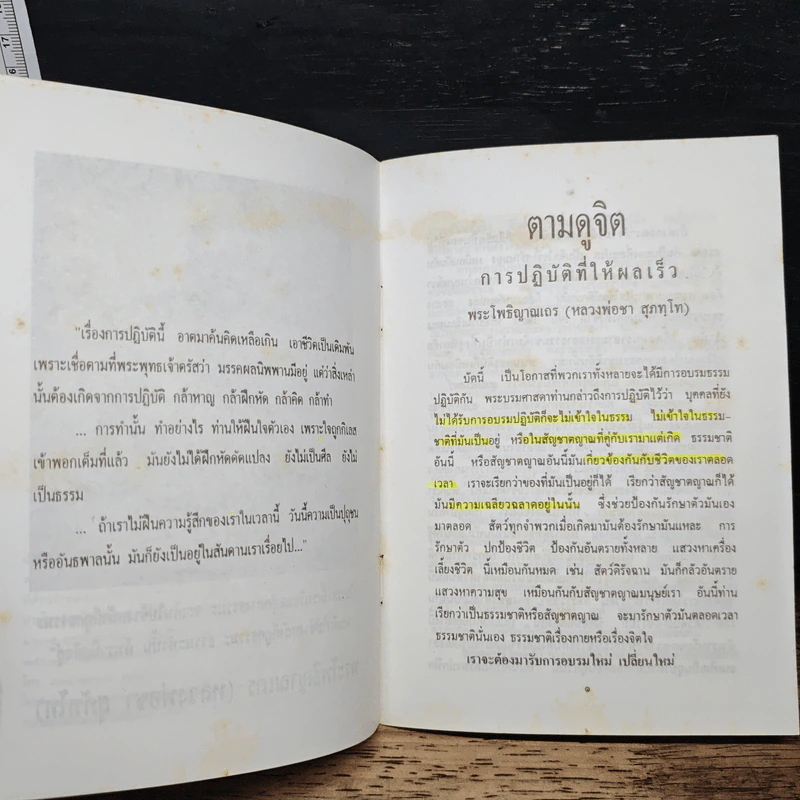 "เรื่องการปฏิบัตินี้ อาตมาค้นคิดเหลือเกิน เอาชีวิตเป็นเดิมพัน
เพราะเชื่อตามที่พระพุทธเจ้าตรัสว่า มรรคผลนิพพานมีอยู่ แต่ว่าสิ่งเหล่า
นั้นต้องเกิดจากการปฏิบัติ กล้าหาญ กล้าฝึกหัด กล้าคิด กล้าทำ
... การทำนั้น ทำอย่างไร ท่านให้ฝืนใจตัวเอง เพราะใจถูกกิเลส
เข้าพอกเต็มที่แล้ว มันยังไม่ได้ฝึกหัดดัดแปลง ยังไม่เป็นศีล ยังไม่
เป็นธรรม
... ถ้าเราไม่ฝืนความรู้สึกของเราในเวลานี้ วันนี้ความเป็นปุถุชน
หรืออันธพาลนั้น มันก็ยังเป็นอยู่ในสันดานเราเรื่อยไป..."
ตามดูจิต
การปฏิบัติที่ให้ผลเร็ว
พระโพธิญาณเถร (หลวงพ่อชา สุภทฺโท)
บัดนี้ เป็นโอกาสที่พวกเราทั้งหลายจะได้มีการอบรมธรรม
ปฏิบัติกัน พระบรมศาสดาท่านกล่าวถึงการปฏิบัติไว้ว่า บุคคลที่ยัง
ไม่ได้รับการอบรมปฏิบัติก็จะไม่เข้าใจในธรรม ไม่เข้าใจในธรรม-
ชาติที่มันเป็นอยู่ หรือในสัญชาตญาณที่คู่กับเรามาแต่เกิด ธรรมชาติ
อันนี้ หรือสัญชาตญาณอันนี้มันเกี่ยวข้องกันกับชีวิตของเราตลอด
เวลา เราจะเรียกว่าของที่มันเป็นอยู่ก็ได้ เรียกว่าสัญชาตญาณก็ได้
มันมีความเฉลียวฉลาดอยู่ในนั้น ซึ่งช่วยป้องกันรักษาตัวมันเอง
มาตลอด สัตว์ทุกจำพวกเมื่อเกิดมามันต้องรักษามันแหละ การ
รักษาตัว ปกป้องชีวิต ป้องกันอันตรายทั้งหลาย แสวงหาเครื่อง
เลี้ยงชีวิต นี้เหมือนกันหมด เช่น สัตว์ดิรัจฉาน มันก็กลัวอันตราย
แสวงหาความสุข เหมือนกันกับสัญชาตญาณมนุษย์เรา อันนี้ท่าน
เรียกว่าเป็นธรรมชาติหรือสัญชาตญาณ จะมารักษาตัวมันตลอดเวลา
ธรรมชาตินั่นเอง ธรรมชาติเรื่องกายหรือเรื่องจิตใจ
เราจะต้องมารับการอบรมใหม่ เปลี่ยนใหม่
17